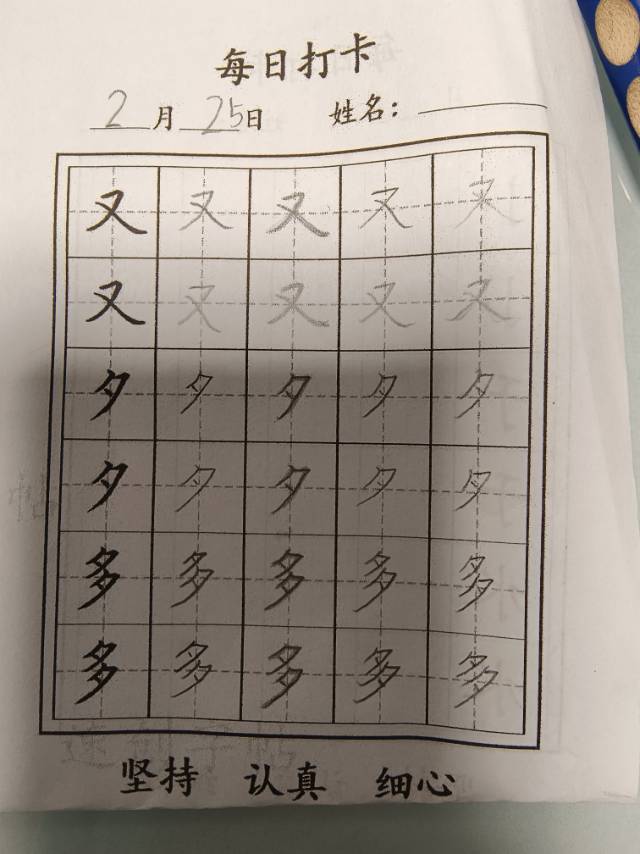 每日打卡
2月25日 姓名：
又又又又又
又又又又又
夕夕夕夕夕
夕夕夕夕夕
多多多多多
多多多多多
坚持 认真 细心